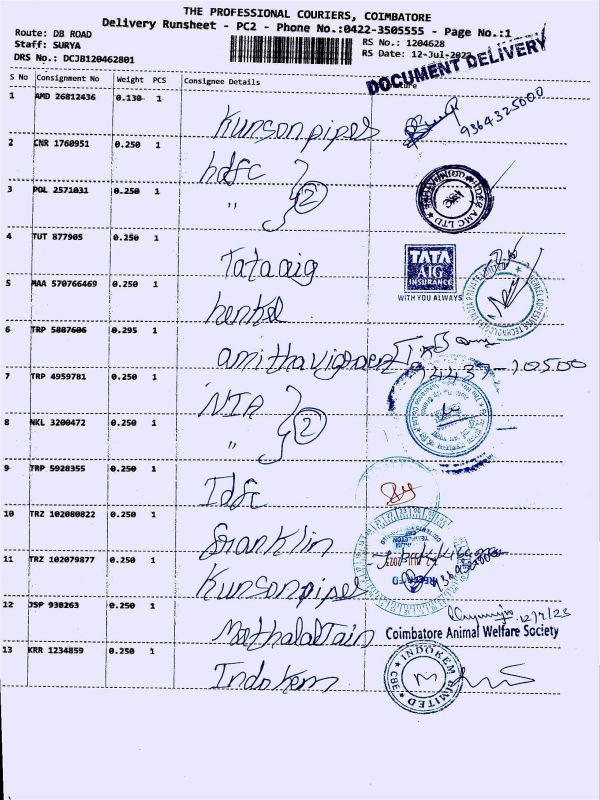 THE PROFESSIONAL COURIERS, COIMBATORE
Delivery Runsheet - PC2 - Phone No.:0422-3505555 - Page No.:1
Route: DB ROAD
Staff: SURYA
DRS No.: DCJB120462801
RS No.: 1204628
RS Date: 12-Jul-2023
DOCUMENT DELIVERY
S No Consignment No Weight PCS Consignee Details
1 AMD 26812436 0.130 1 Kunsonpipes 9364325000
2 CNR 1760951 0.250 1 hdfc
3 POL 2571031 0.250 1 " 2
AMC LTD
4 TUT 877905 0.250 1 Tata aig
TATA
AIG
INSURANCE
WITH YOU ALWAYS
5 MAA 570766469 0.250 1 henkel
6 TRP 5887606 0.295 1 94437-10500
7 TRP 4959781 0.250 1 NIA
8 NKL 3200472 0.250 1 " 2
9 TRP 5928355 0.250 1 Idfc
10 TRZ 102080822 0.250 1 Franklin
11 TRZ 102079877 0.250 1 Kunsonpipes
12 JSP 938263 0.250 1 12/7/23
Coimbatore Animal Welfare Society
13 KRR 1234859 0.250 1 Indokem
INDOKEM LIMITED
CBE